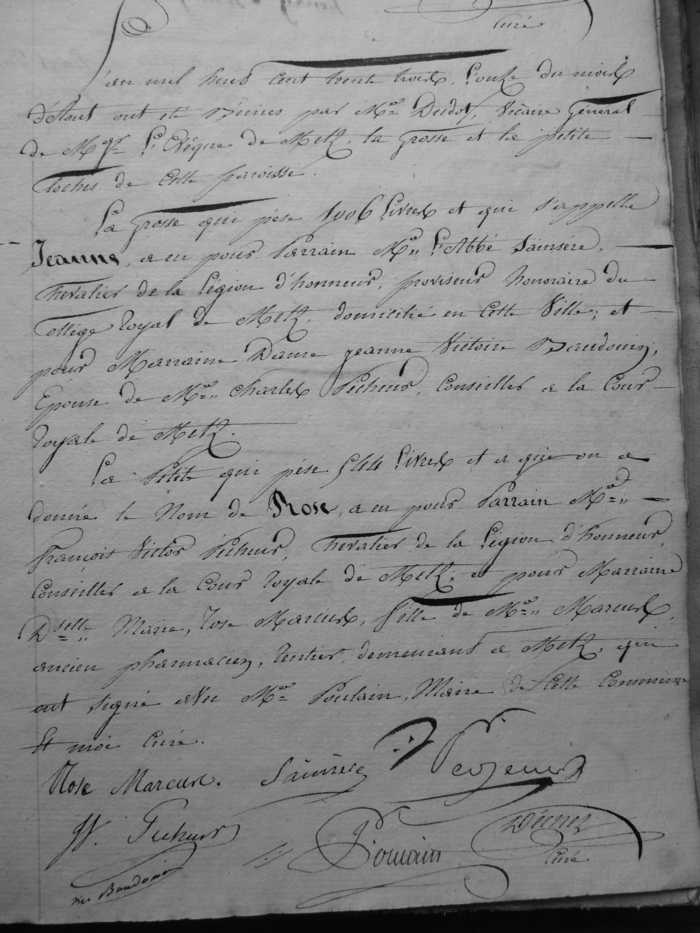 Curé
L'an mil huit cent trente trois, l'onze du mois
d'Aout ont été Bénies par Mr. Dudot, Vicaire général
de Mgr. l'Evêque de Metz, la grosse et la petite
cloches de cette paroisse.
La grosse qui pèse 1006 livres et qui s'appelle
Jeanne, a eu pour Parrain Mr. l'Abbé
Chevalier de la Légion d'honneur, proviseur honoraire du
Collège Royal de Metz, domicilié en cette Ville; et
pour Marraine Dame Jeanne Victoire Baudouin,
Epouse de Mr. Charles Pécheur, Conseiller a la Cour
Royale de Metz.
La Petite qui pèse livres et a qui on a
donné le Nom de Rose, a eu pour Parrain Mr.
François Victor Pécheur, Chevalier de la Légion d'honneur,
Conseiller a la Cour Royale de Metz, et pour Marraine
Dselle Marie, Rose Marcus, fille de Mr. Marcus,
ancien pharmacien, Rentier, demeurant a Metz, qui
ont signé avec Mr. Poulain, Maire de Cette Commune
Et moi Curé.
Rose Marcus.
V. Pécheur
née Baudouin
Curé